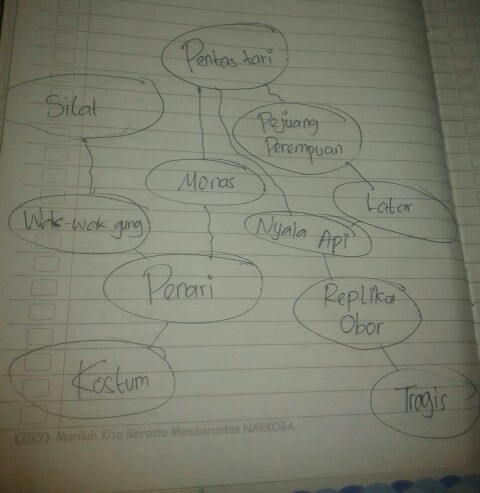 Pentas tari
Silat
Pejuang
Perempuan
Monas
Latar
Wak-wak gung
Nyala Api
Penari
Replika
Obor
Kostum
Tragis
KIKY Marilah Kita Bersatu Memberantas NARKOBA